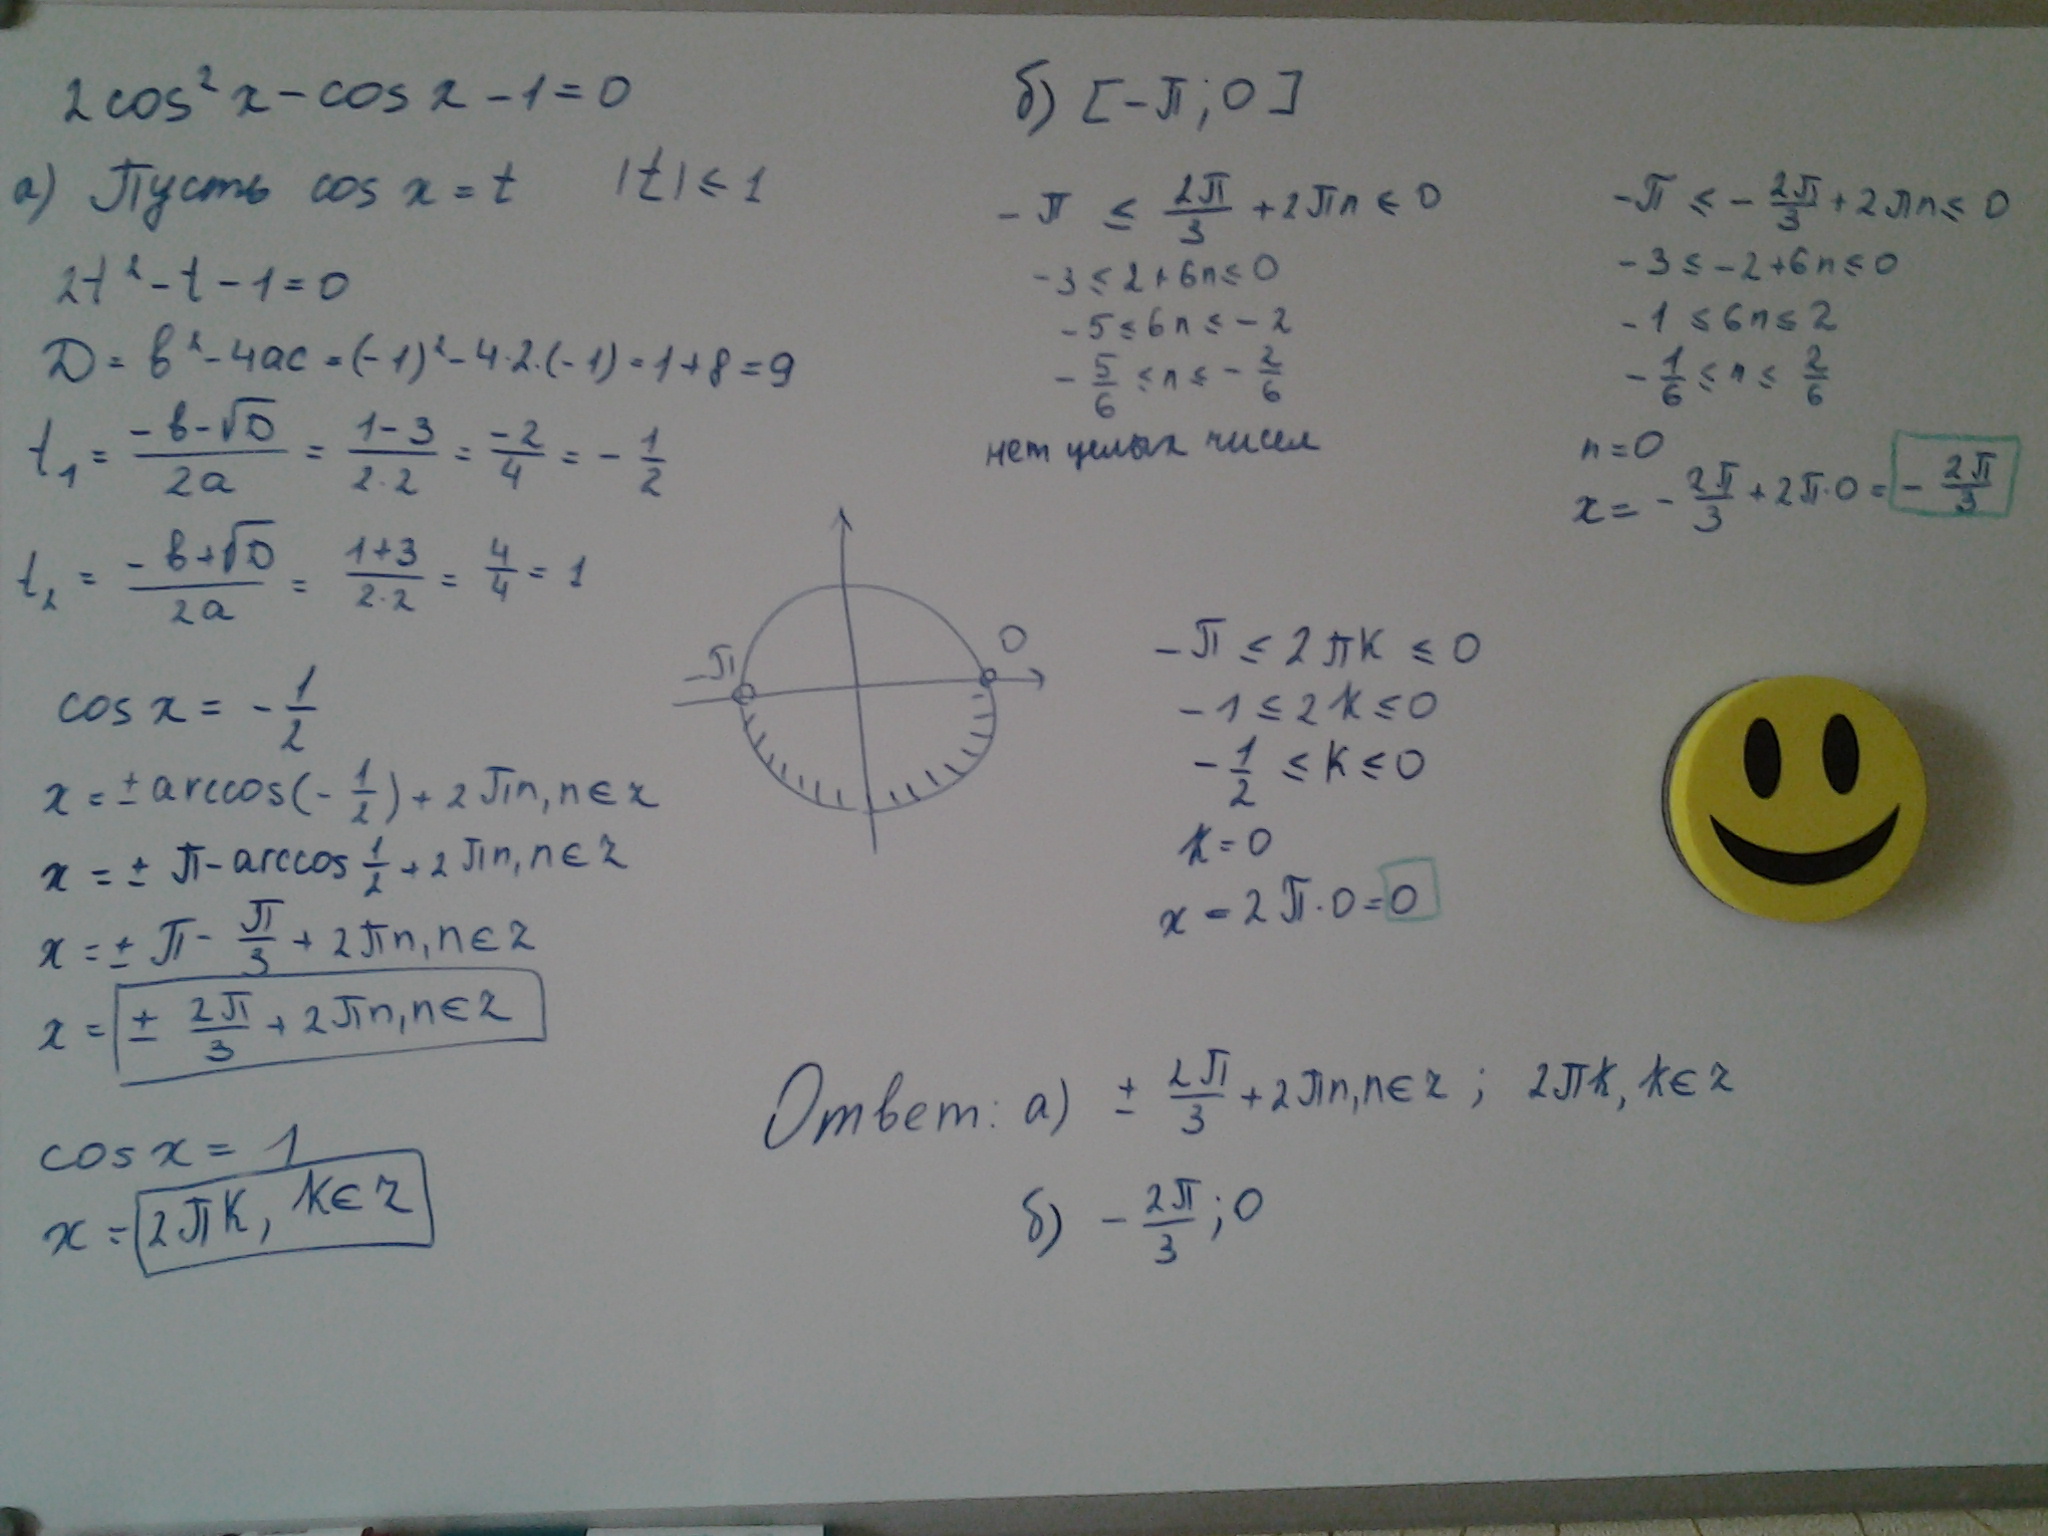 2cos² x - cos x - 1 = 0
а) Пусть cos x = t |t| ≤ 1
2t² - t - 1 = 0
D = в² - 4ac = (-1)² - 4·2·(-1) = 1 + 8 = 9
t₁ = (-в-√D)/(2a) = (1-3)/(2·2) = -2/4 = -1/2
t₂ = (-в+√D)/(2a) = (1+3)/(2·2) = 4/4 = 1
cos x = -1/2
x = ± arccos(-1/2) + 2πn, n ∈ z
x = ± π - arccos 1/2 + 2πn, n ∈ z
x = ± π - π/3 + 2πn, n ∈ z
x = ± 2π/3 + 2πn, n ∈ z
cos x = 1
x = 2πk, k ∈ z
-π
0
б) [-π; 0]
-π ≤ 2π/3 + 2πn ≤ 0
-3 ≤ 2 + 6n ≤ 0
-5 ≤ 6n ≤ -2
-5/6 ≤ n ≤ -2/6
нет целых чисел
-π ≤ -2π/3 + 2πn ≤ 0
-3 ≤ -2 + 6n ≤ 0
-1 ≤ 6n ≤ 2
-1/6 ≤ n ≤ 2/6
n = 0
x = -2π/3 + 2π·0 = -2π/3
-π ≤ 2πk ≤ 0
-1 ≤ 2k ≤ 0
-1/2 ≤ k ≤ 0
k = 0
x = 2π·0 = 0
Ответ: а) ± 2π/3 + 2πn, n ∈ z; 2πk, k ∈ z
б) -2π/3; 0